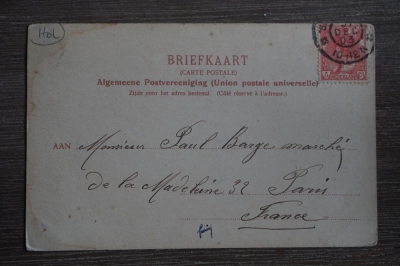 Hol
DEC
03
BRIEFKAART
(CARTE POSTALE)
Algemeene Postvereeniging (Union postale universelle)
Zijde voor het adres bestemd. (Côté réservé à l'adresse.)
AAN Monsieur Paul Barge marché
de la Madeleine 32 Paris
France